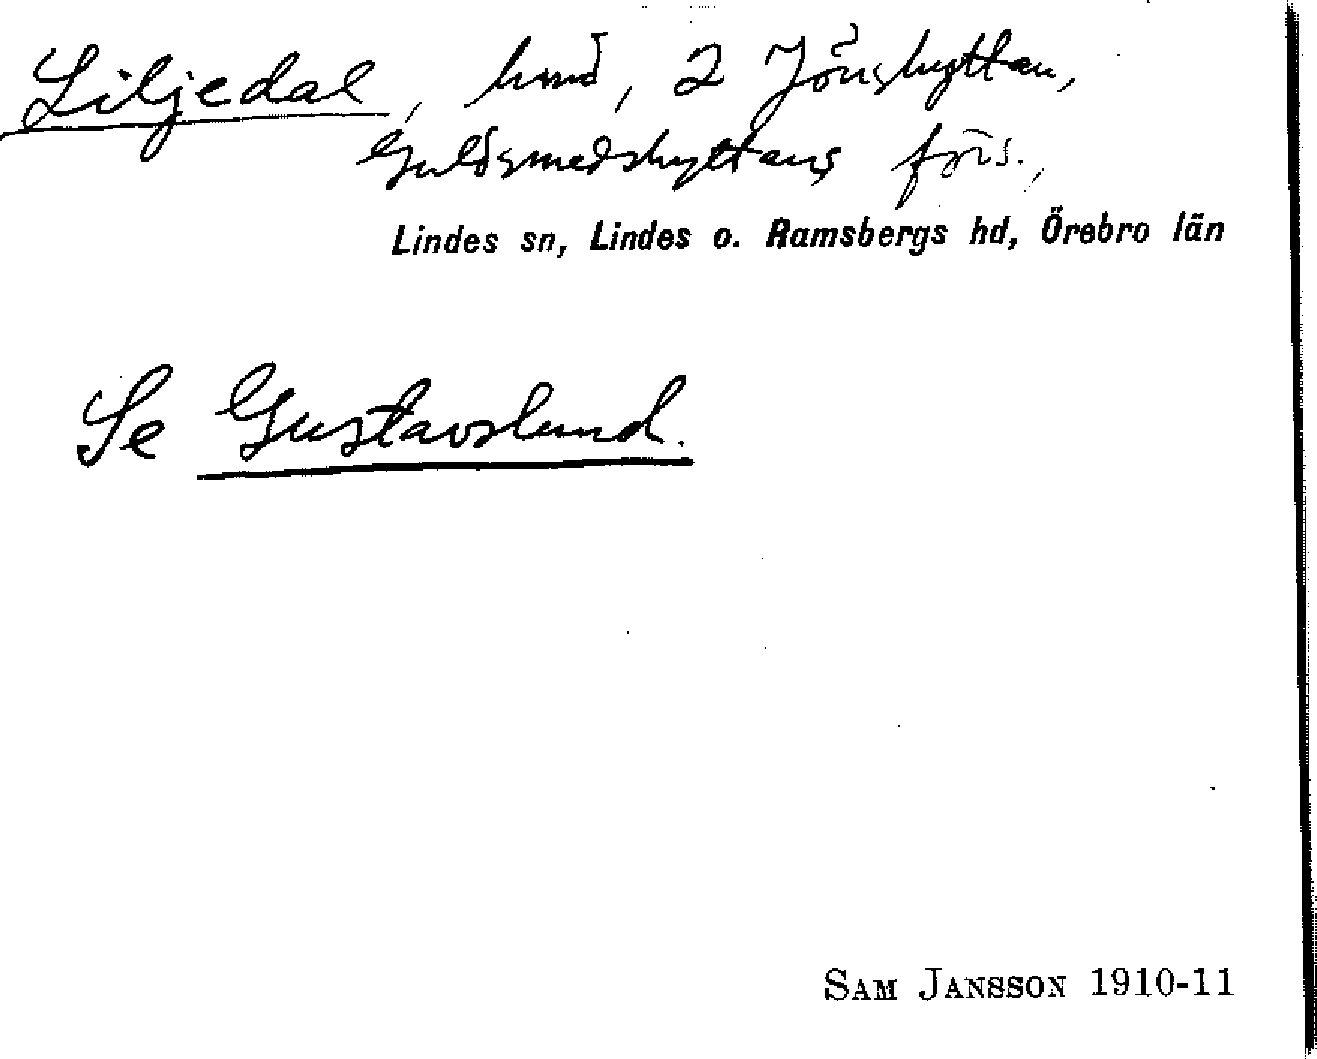 Liljedal, hmd, 2 Jönshyttan,
Guldsmedshyttans förs.,
Lindes sn, Lindes o. Ramsbergs hd, Örebro län
Se Gustavslund.
SAM JANSSON 1910-11